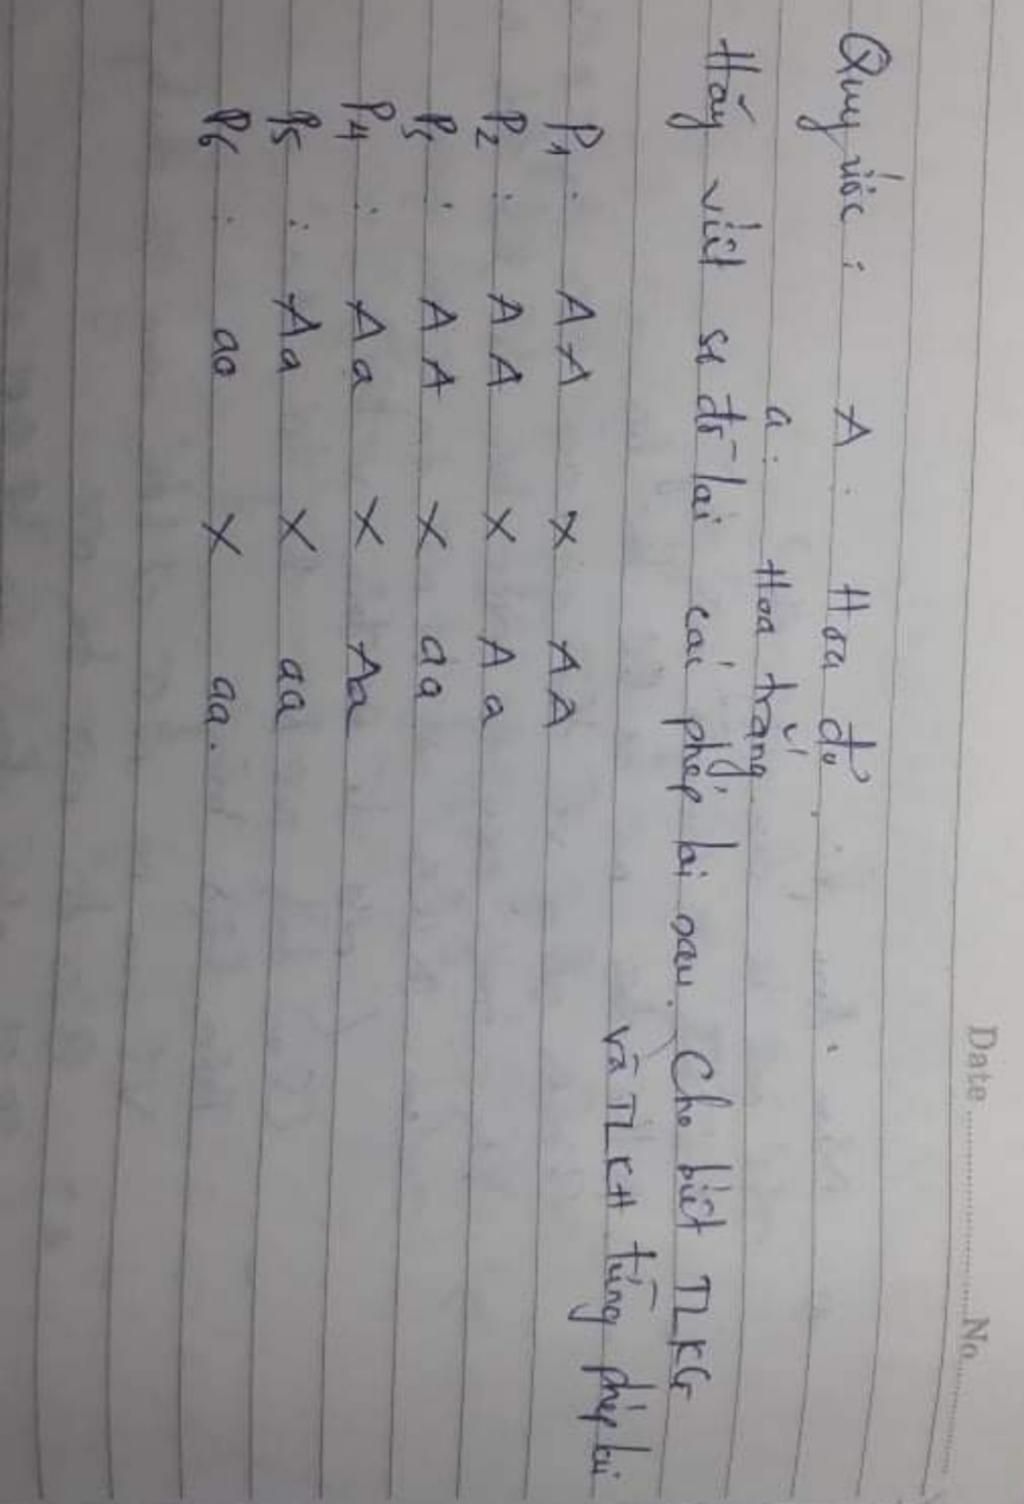 Date ............ No ............
Quy ước : A : Hoa đỏ
a : Hoa trắng
Hãy viết sơ đồ lai các phép lai sau. Cho biết TLKG
và TLKH từng phép lai
P1 : AA x AA
P2 : AA x Aa
P3 : AA x aa
P4 : Aa x Aa
P5 : Aa x aa
P6 : aa x aa.